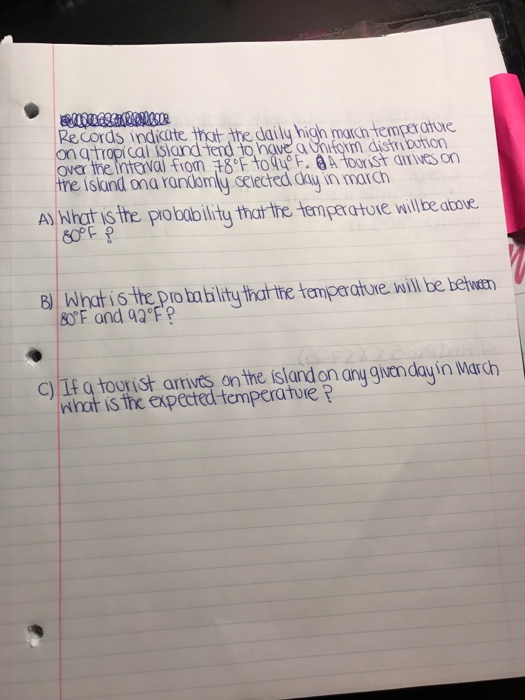 Records indicate that the daily high march temperature
on a tropical island tend to have a uniform distribution
over the interval from 78°F to 94°F. A tourist arrives on
the island on a randomly selected day in march
A) What is the probability that the temperature will be above
80°F ?
B) What is the probability that the temperature will be between
80°F and 92°F?
C) If a tourist arrives on the island on any given day in March
what is the expected temperature ?